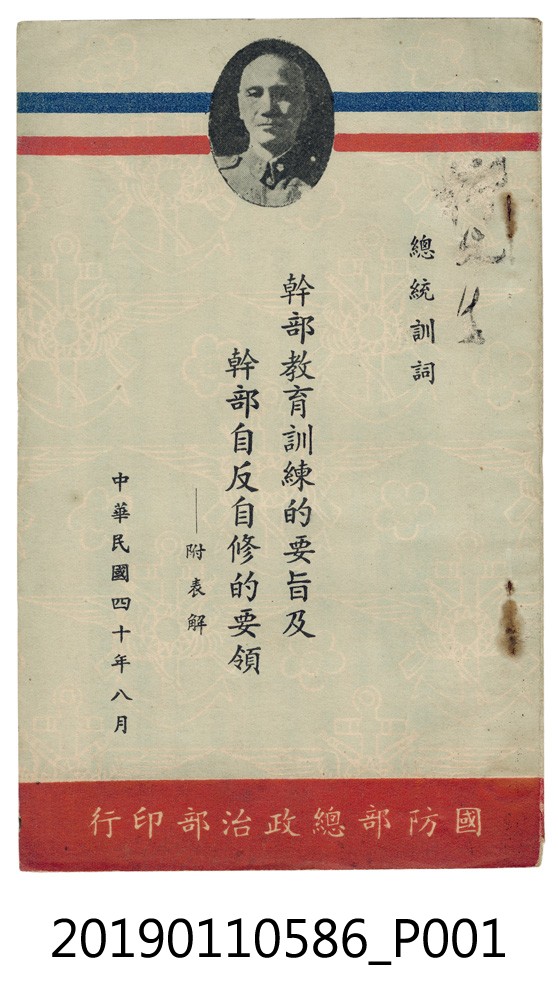 總統訓詞
幹部教育訓練的要旨及
幹部自反自修的要領
——附表解
中華民國四十年八月
國防部總政治部印行
20190110586_P001